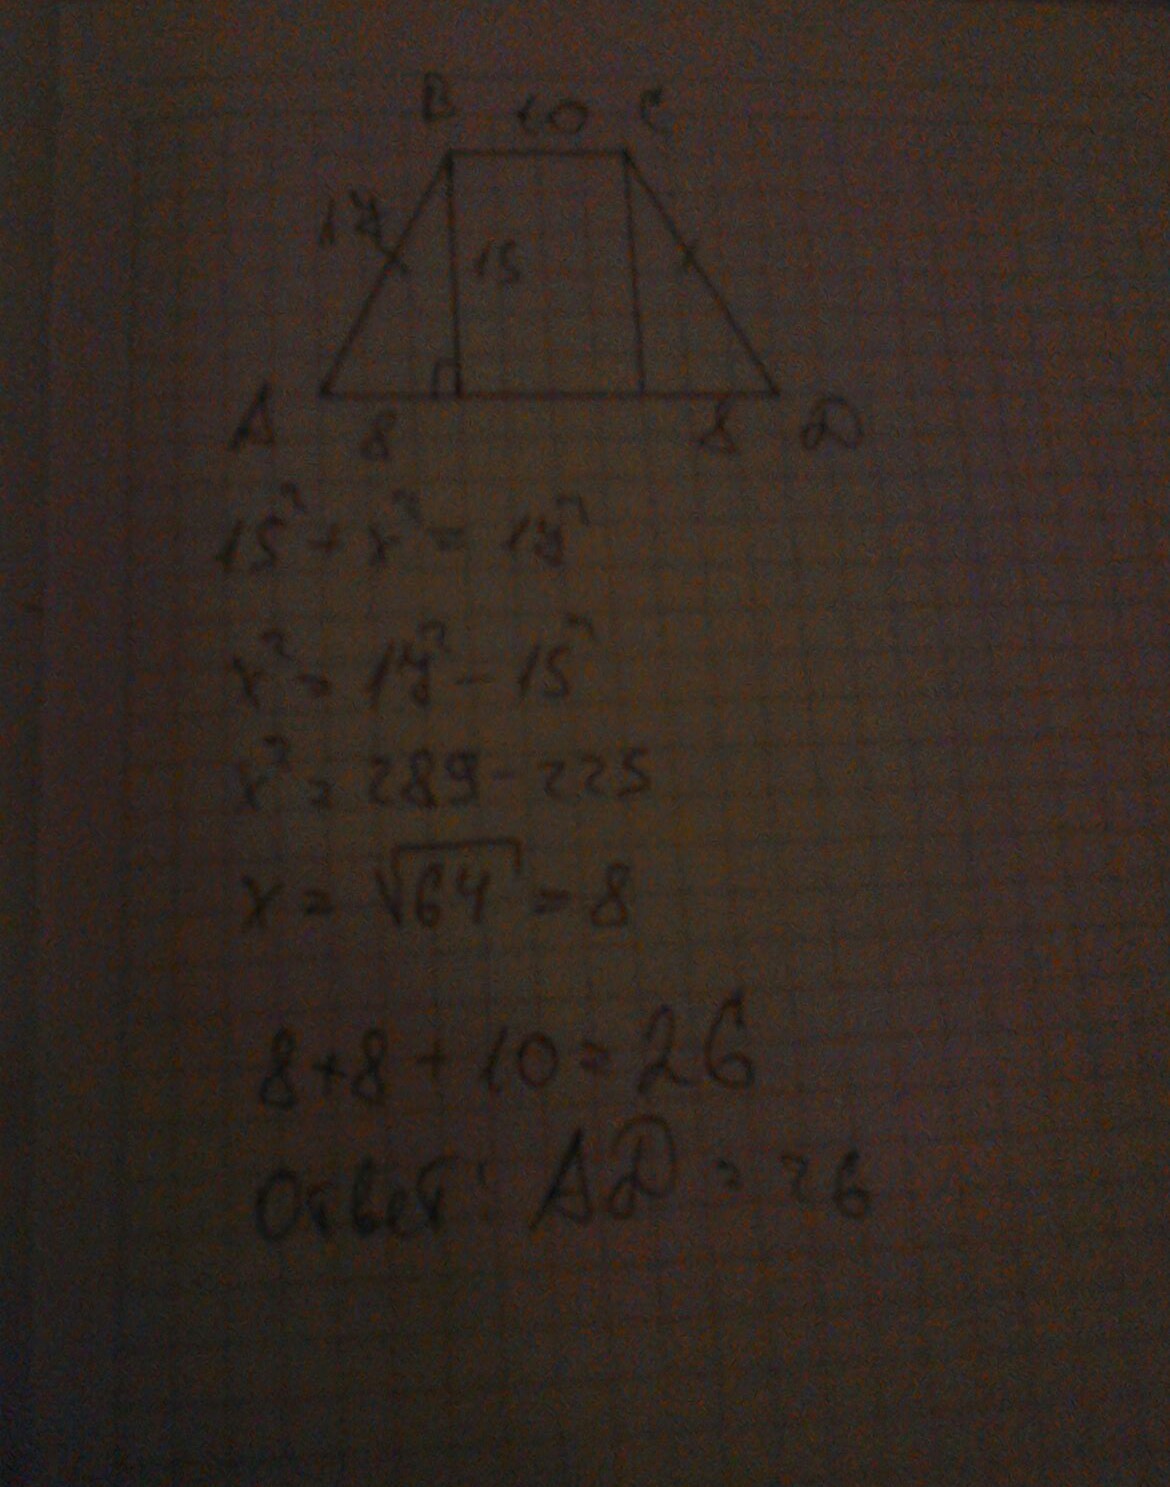 B 10 C
17 15
A 8 8 D
15² + x² = 17²
x² = 17² - 15²
x² = 289 - 225
x = √64 = 8
8 + 8 + 10 = 26
Ответ: AD = 26